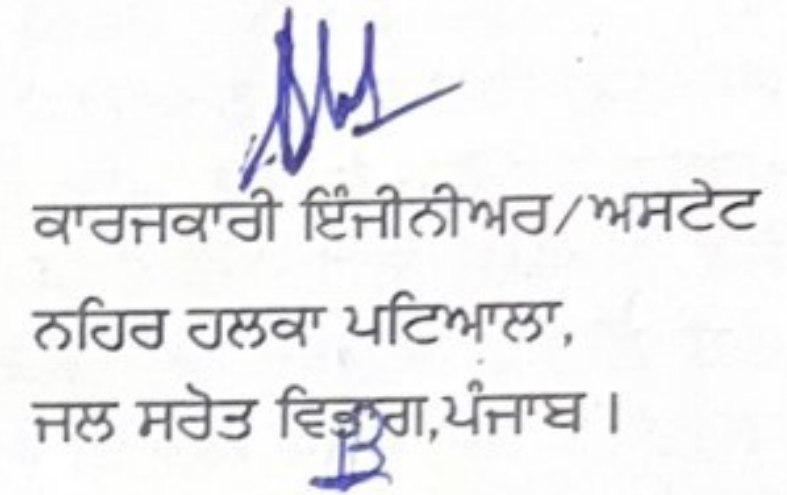 ਕਾਰਜਕਾਰੀ ਇੰਜੀਨੀਅਰ/ਅਸਟੇਟ
ਨਹਿਰ ਹਲਕਾ ਪਟਿਆਲਾ,
ਜਲ ਸਰੋਤ ਵਿਭਾਗ,ਪੰਜਾਬ ।